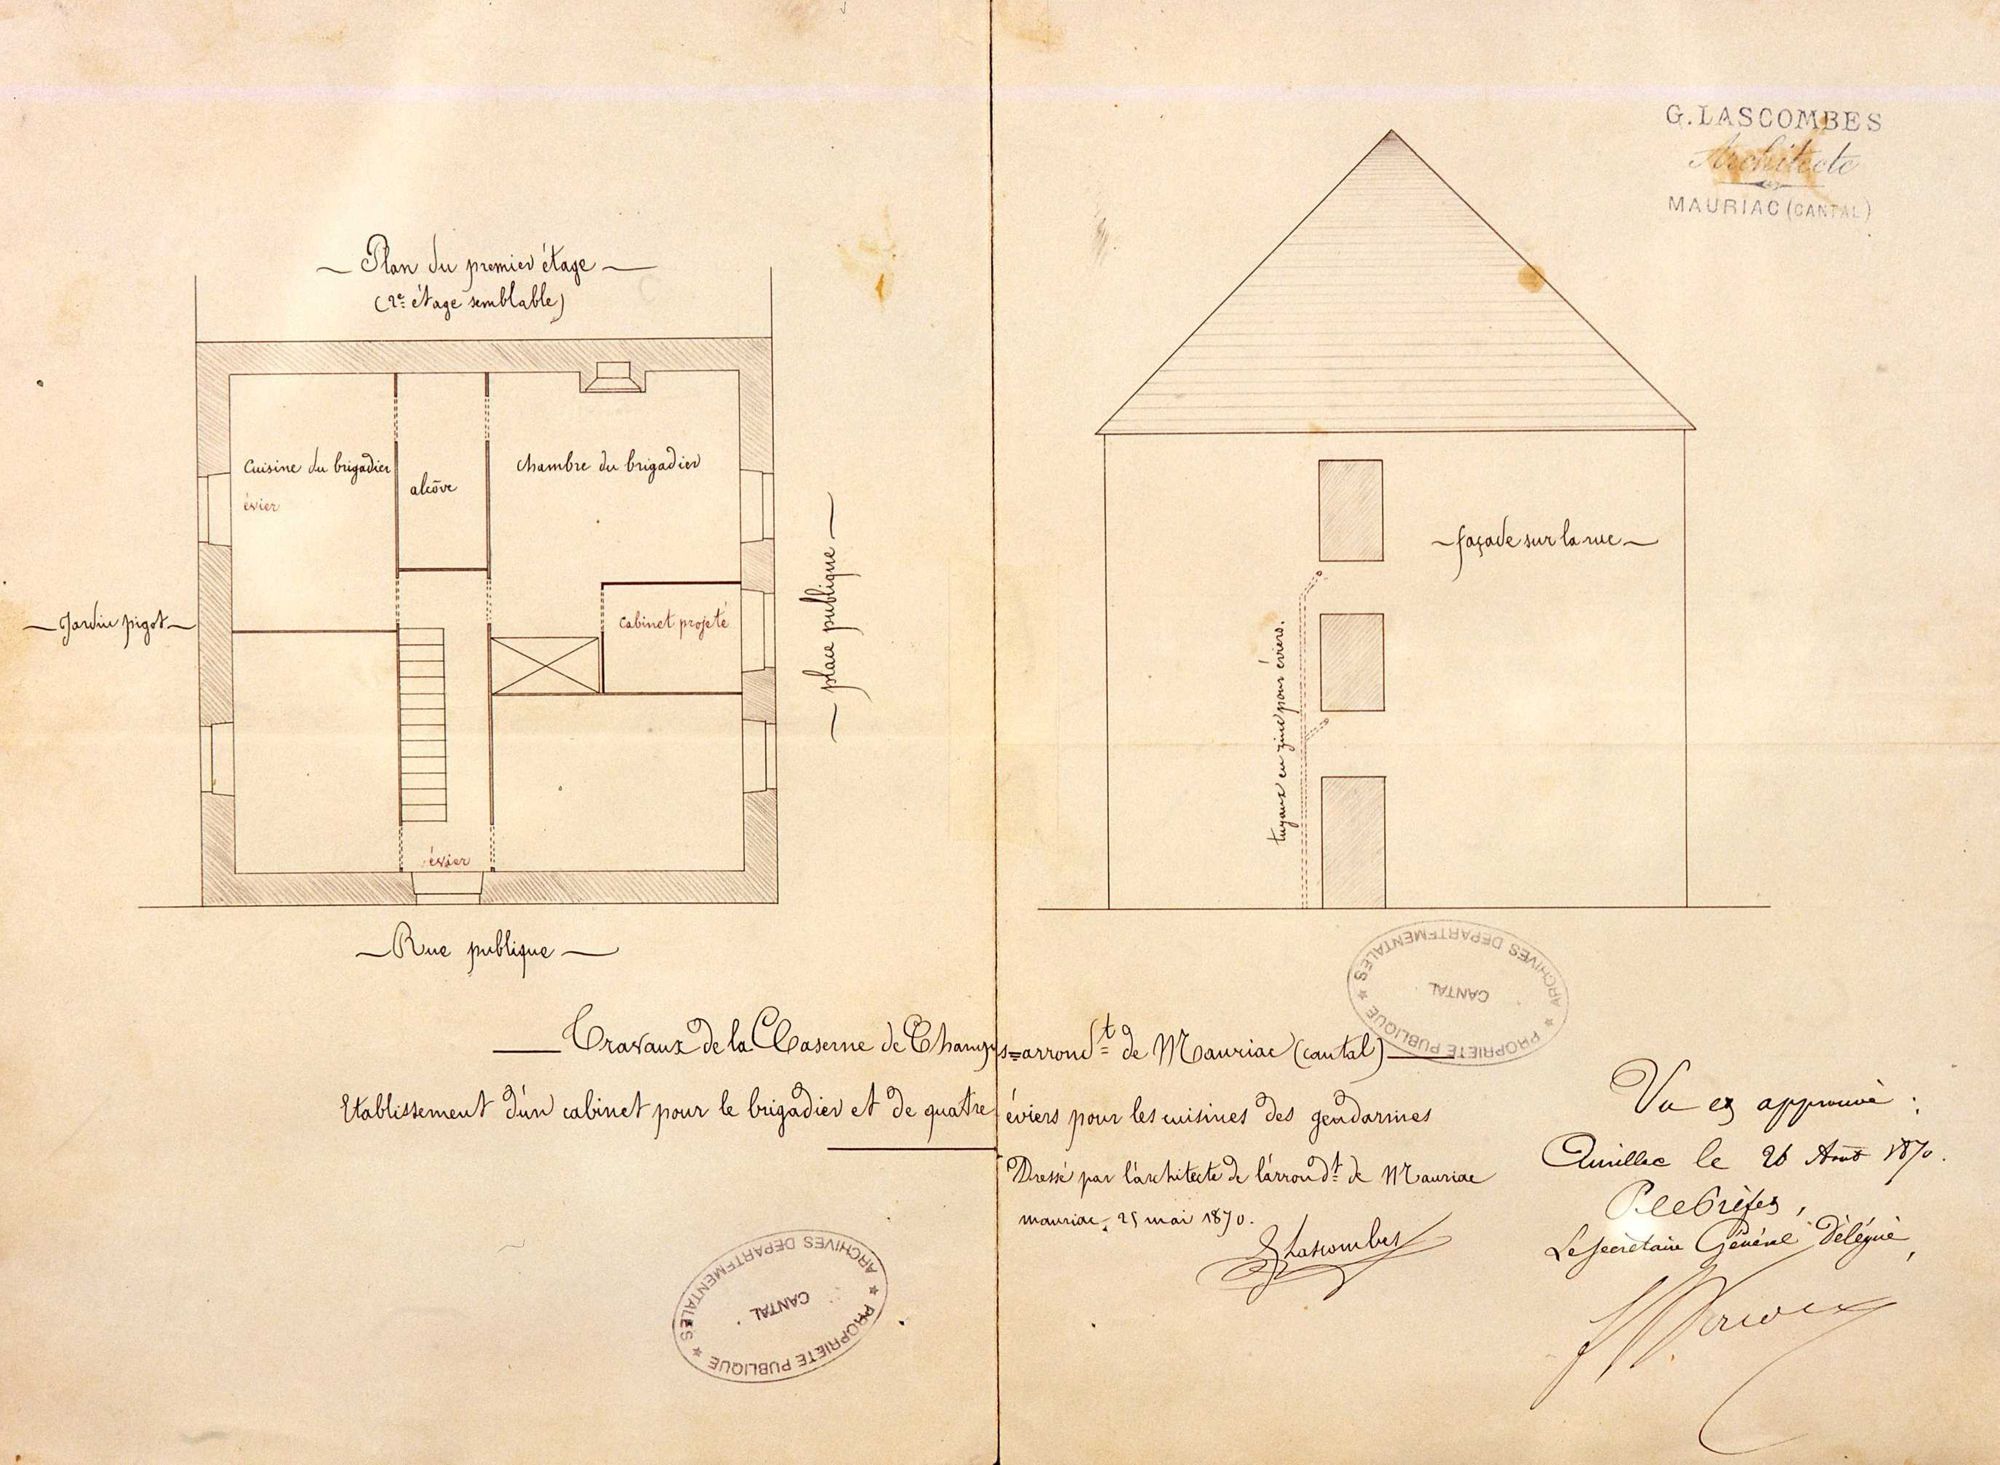 G. LASCOMBES
Architecte
MAURIAC (CANTAL)
Plan du premier étage
(2e. étage semblable)
Cuisine du brigadier
évier
alcôve
Chambre du brigadier
Cabinet projeté
Jardin pigot
place publique
évier
Rue publique
façade sur la rue
tuyaux en zinc pour éviers.
ARCHIVES DEPARTEMENTALES
CANTAL
PROPRIETE PUBLIQUE
Travaux de la Caserne de Champs=arrondt de Mauriac (cantal)
Etablissement d'un cabinet pour le brigadier et de quatre éviers pour les cuisines des gendarmes
Dressé par l'architecte de l'arrondt de Mauriac
mauriac, 25 mai 1870.
GLascombes
Vu et approuvé :
Aurillac le 26 Août 1870.
P. le Préfet,
Le Secrétaire Général Délégué,
ARCHIVES DEPARTEMENTALES
CANTAL
PROPRIETE PUBLIQUE